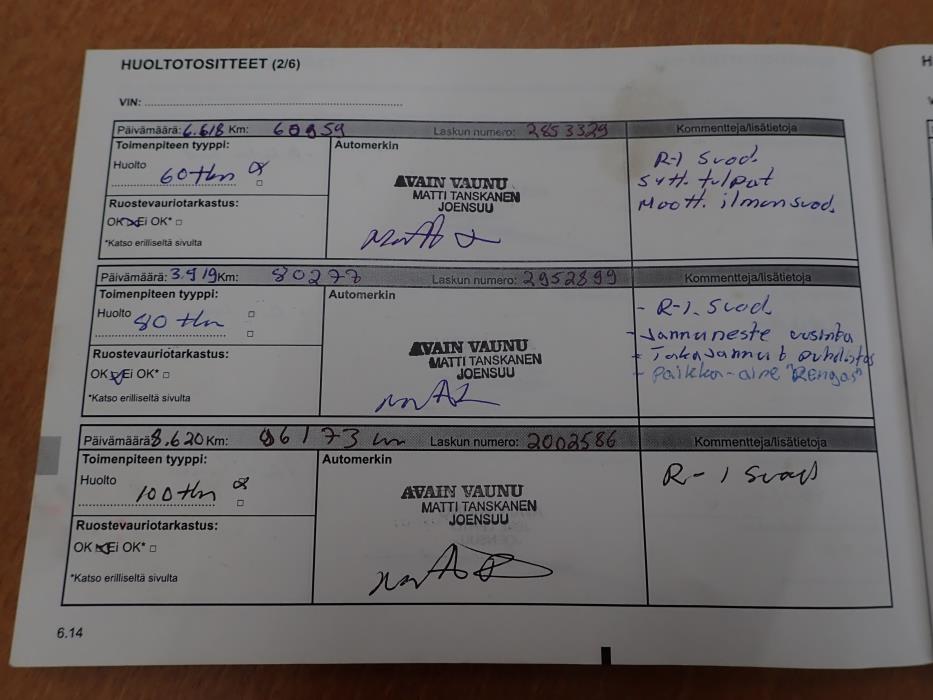 HUOLTOTOSITTEET (2/6)
VIN:
Päivämäärä: 6.618 Km: 60959 Laskun numero: 2853329 Kommentteja/lisätietoja
Toimenpiteen tyyppi: Automerkin
Huolto 60 tkm
R-1 Svod.
Sytt. tulpat
Moott. ilmansvod.
AVAIN VAUNU
MATTI TANSKANEN
JOENSUU
Ruostevauriotarkastus:
OK Ei OK*
*Katso erilliseltä sivulta
Päivämäärä: 3.919 Km: 80277 Laskun numero: 2952899 Kommentteja/lisätietoja
Toimenpiteen tyyppi: Automerkin
Huolto 80 tkm
- R-1. Svod
- Jarruneste uusinta
- Takajarrut puhdistus
- Paikka-aine "Rengas"
AVAIN VAUNU
MATTI TANSKANEN
JOENSUU
Ruostevauriotarkastus:
OK Ei OK*
*Katso erilliseltä sivulta
Päivämäärä 8.620 Km: 96173 km Laskun numero: 2002586 Kommentteja/lisätietoja
Toimenpiteen tyyppi: Automerkin
Huolto 100 tkm
R-1 Svod
AVAIN VAUNU
MATTI TANSKANEN
JOENSUU
Ruostevauriotarkastus:
OK Ei OK*
*Katso erilliseltä sivulta
6.14